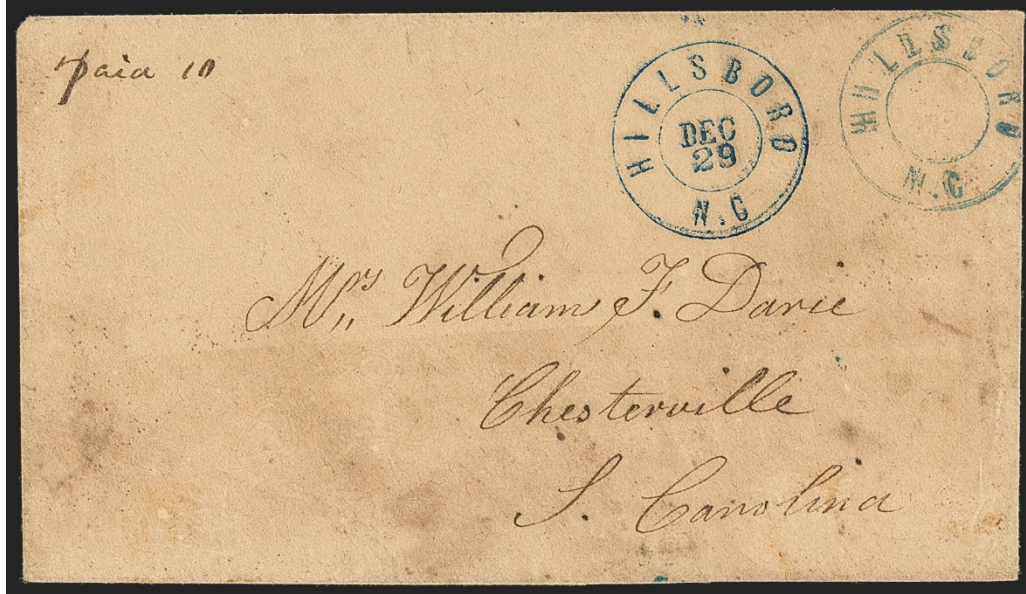 Paid 10
HILLSBORO
DEC
29
N.C
HILLSBORO
N.C.
Mrs,, William F. Davie
Chesterville
S. Carolina